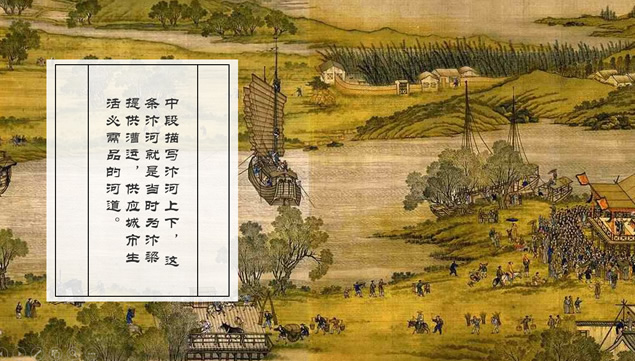 中段描写汴河上下，这
条汴河就是当时为汴梁
提供漕运，供应城市生
活必需品的河道。